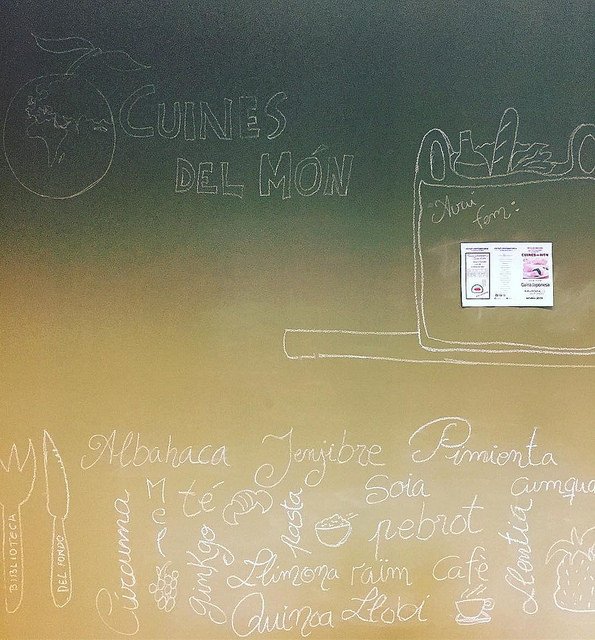 CUINES
DEL MÓN
Avui
fem:
CUINES del MÓN
Cuina Japonesa
Albahaca
Jenjibre
Pimienta
Mel
té
Pasta
Soia
cumqua
BIBLIOTECA
DEL FONDO
Cúrcuma
Ginkgo
pebrot
Llentia
Llimona
raïm
Café
Quinoa
Llobí